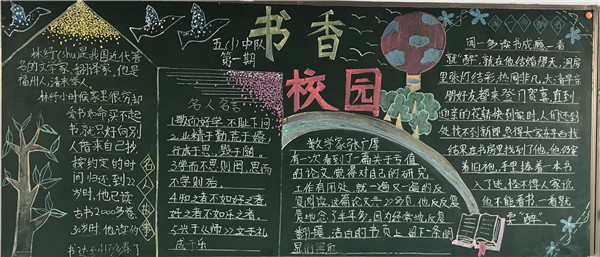 书香
校园
五(1)中队
第一期
林纾(shu)是我国近代著
名的文学家、翻译家,他是
福州人,清末举人。
林纾小时候家里很穷却
爱书如命,买不起
书,就只好向别
人借来自己抄,
按约定的时
间归还,到22
岁时,他已读
古书2000多卷
30岁时,他读的
书达
名人故事
名人名言
1.敏而好学,不耻下问
2.业精于勤荒于嬉,
行成于思,毁于随。
3.学而不思则罔,思而
不学则殆。
4.知之者不如好之者,
好之者不如乐之者。
5.兴于《师》立于礼
成于乐
数学家张广厚
有一次看到了一篇关于亏值
的论文,觉得对自己的研究
工作有用处,就一遍又一遍的反
复阅读,这篇论文共20多页,他反反复
复地念了半年多,因为经常地反复
翻摸,洁白的书页上,留下一条明
显的黑印
闻一多醉书
闻一多读书成瘾,一看
就"醉",就在他结婚那天,洞房
里张灯结彩,热闹非凡,大清早亲
朋好友都来登门贺喜,直到
迎亲的花轿快到家时,人们还到
处找不到新郎,急得大家东寻西找
结果在书房里找到了他,他仍穿
着旧袍,手里捧着一本书
入了迷,怪不得人家说
他不能看书,一看就
要"醉"